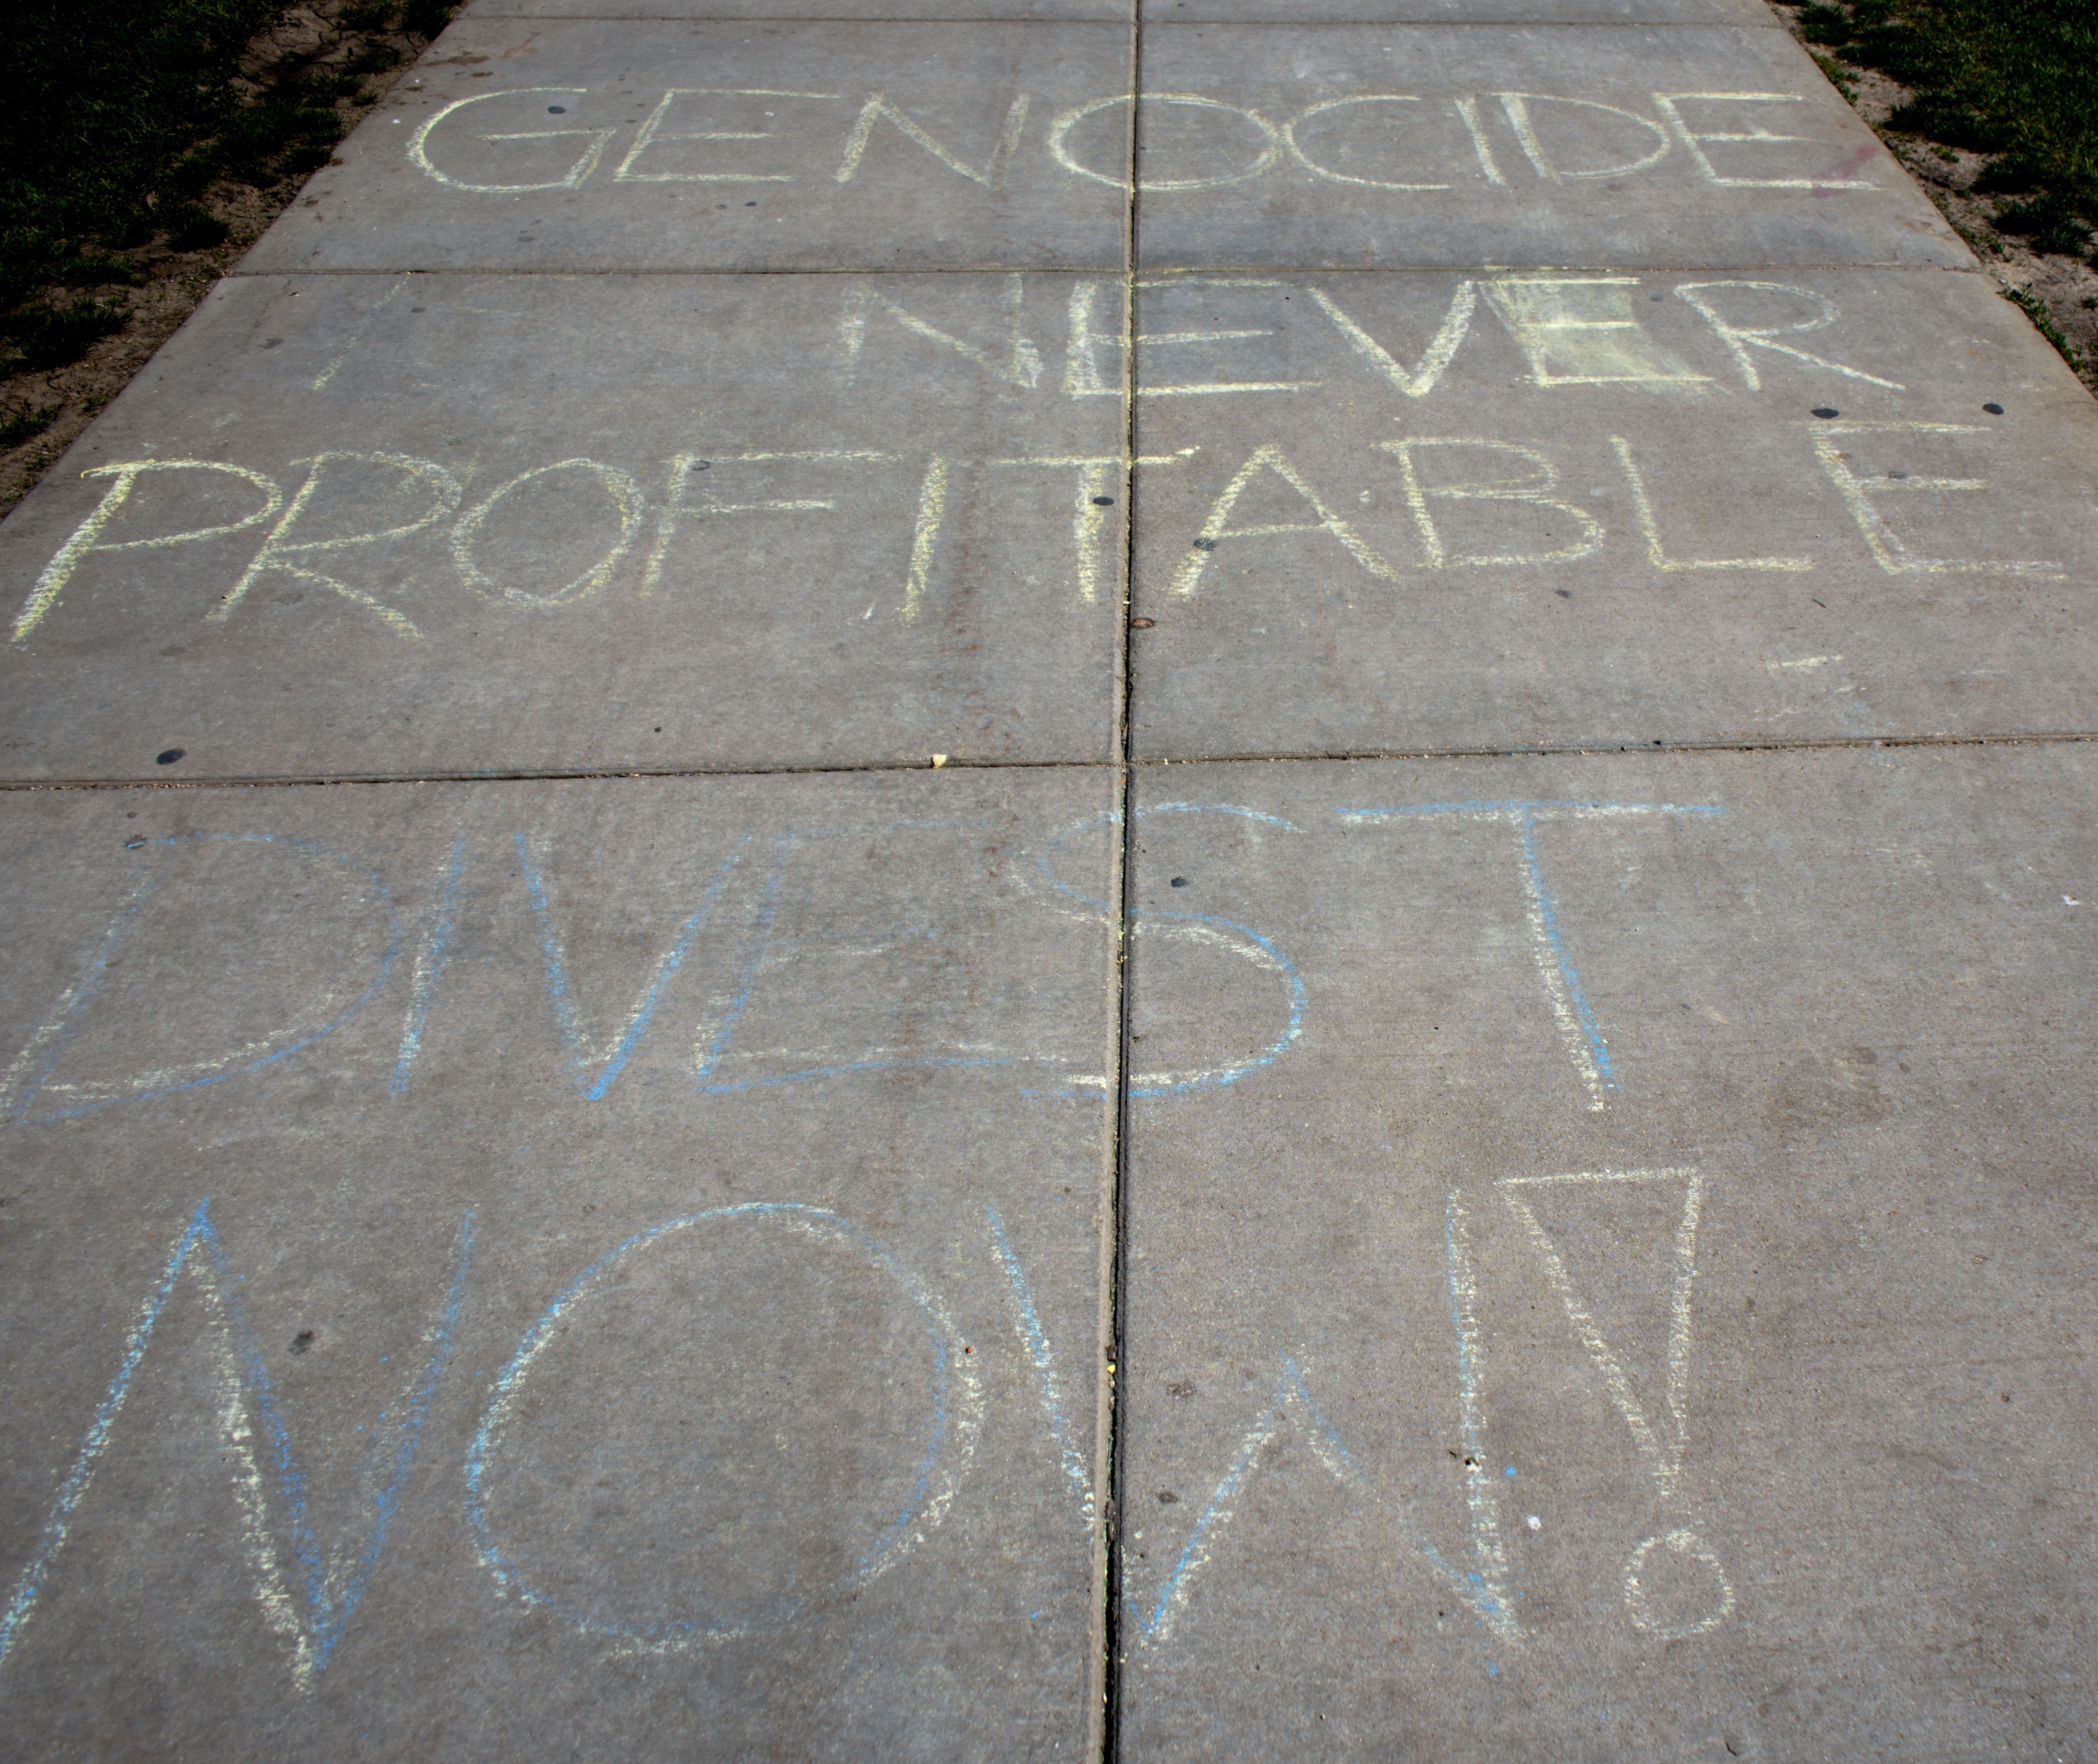 GENOCIDE
IS NEVER
PROFITABLE
DIVEST
NOW!